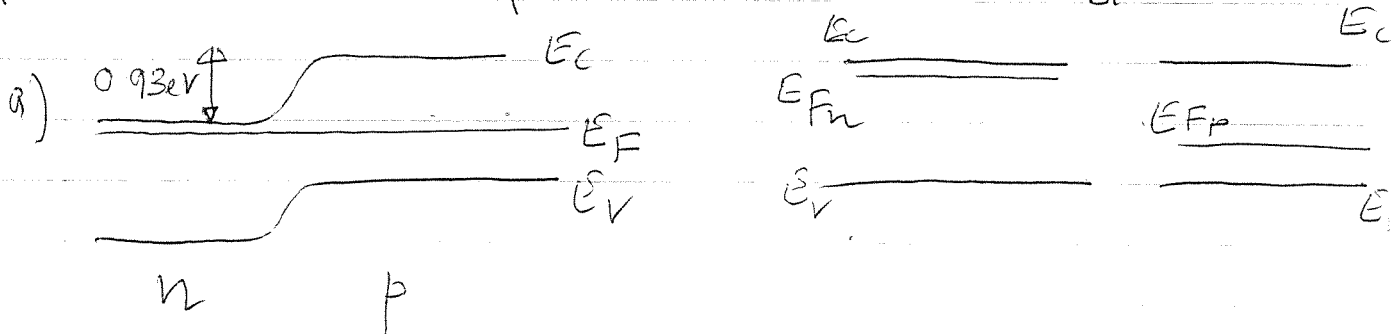 a)
0.93eV
E_C
E_F
E_V
n p
E_C
E_Fn
E_V
E_C
E_Fp
E